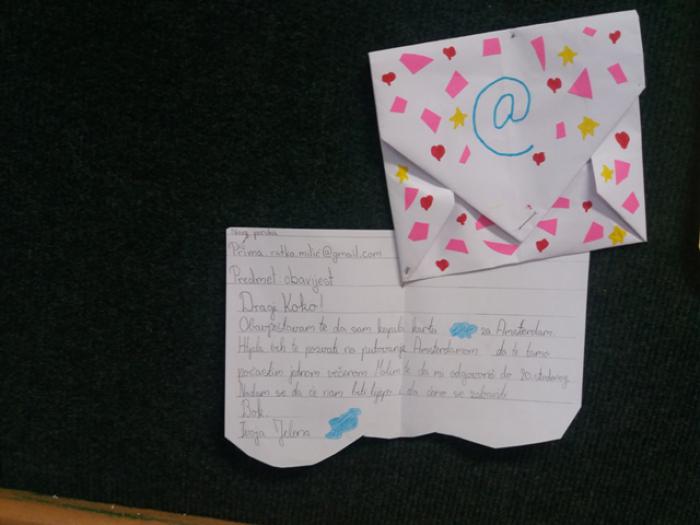 @
Nova poruka
Prima: ratko.milić@gmail.com
Predmet: obavijest
Dragi Koko!
Obavještavam te da sam kupila karta za Amsterdam.
Htjela bih te pozvati na putovanje Amsterdamom da te tamo
počastim jednom večerom. Molim te da mi odgovoriš do 20. studenog.
Nadam se da će nam biti lijepo i da ćemo se zabaviti.
Bok.
Tvoja Jelena